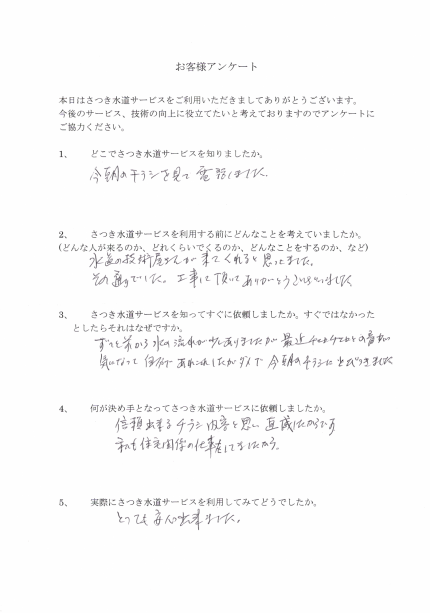 お客様アンケート
本日はさつき水道サービスをご利用いただきましてありがとうございます。
今後のサービス、技術の向上に役立てたいと考えておりますのでアンケートに
ご協力ください。
1、 どこでさつき水道サービスを知りましたか。
今朝のチラシを見て 電話しました。
2、 さつき水道サービスを利用する前にどんなことを考えていましたか。
(どんな人が来るのか、どれくらいでくるのか、どんなことをするのか、など)
水道の技術屋さんが来てくれると思ってました。
その通りでした。工事して頂いてありがとうございました
3、 さつき水道サービスを知ってすぐに依頼しましたか。すぐではなかった
としたらそれはなぜですか。
ずっと前から水の流れが少しありましたが 最近チョロチョロとの音が
気になって 自分で あれこれしたがダメで 今朝のチラシに とびつきました
4、 何が決め手となってさつき水道サービスに依頼しましたか。
信頼出来るチラシ内容と思い 直感したからです
私も住宅関係の仕事をしてましたから。
5、 実際にさつき水道サービスを利用してみてどうでしたか。
とっても安心出来ました。